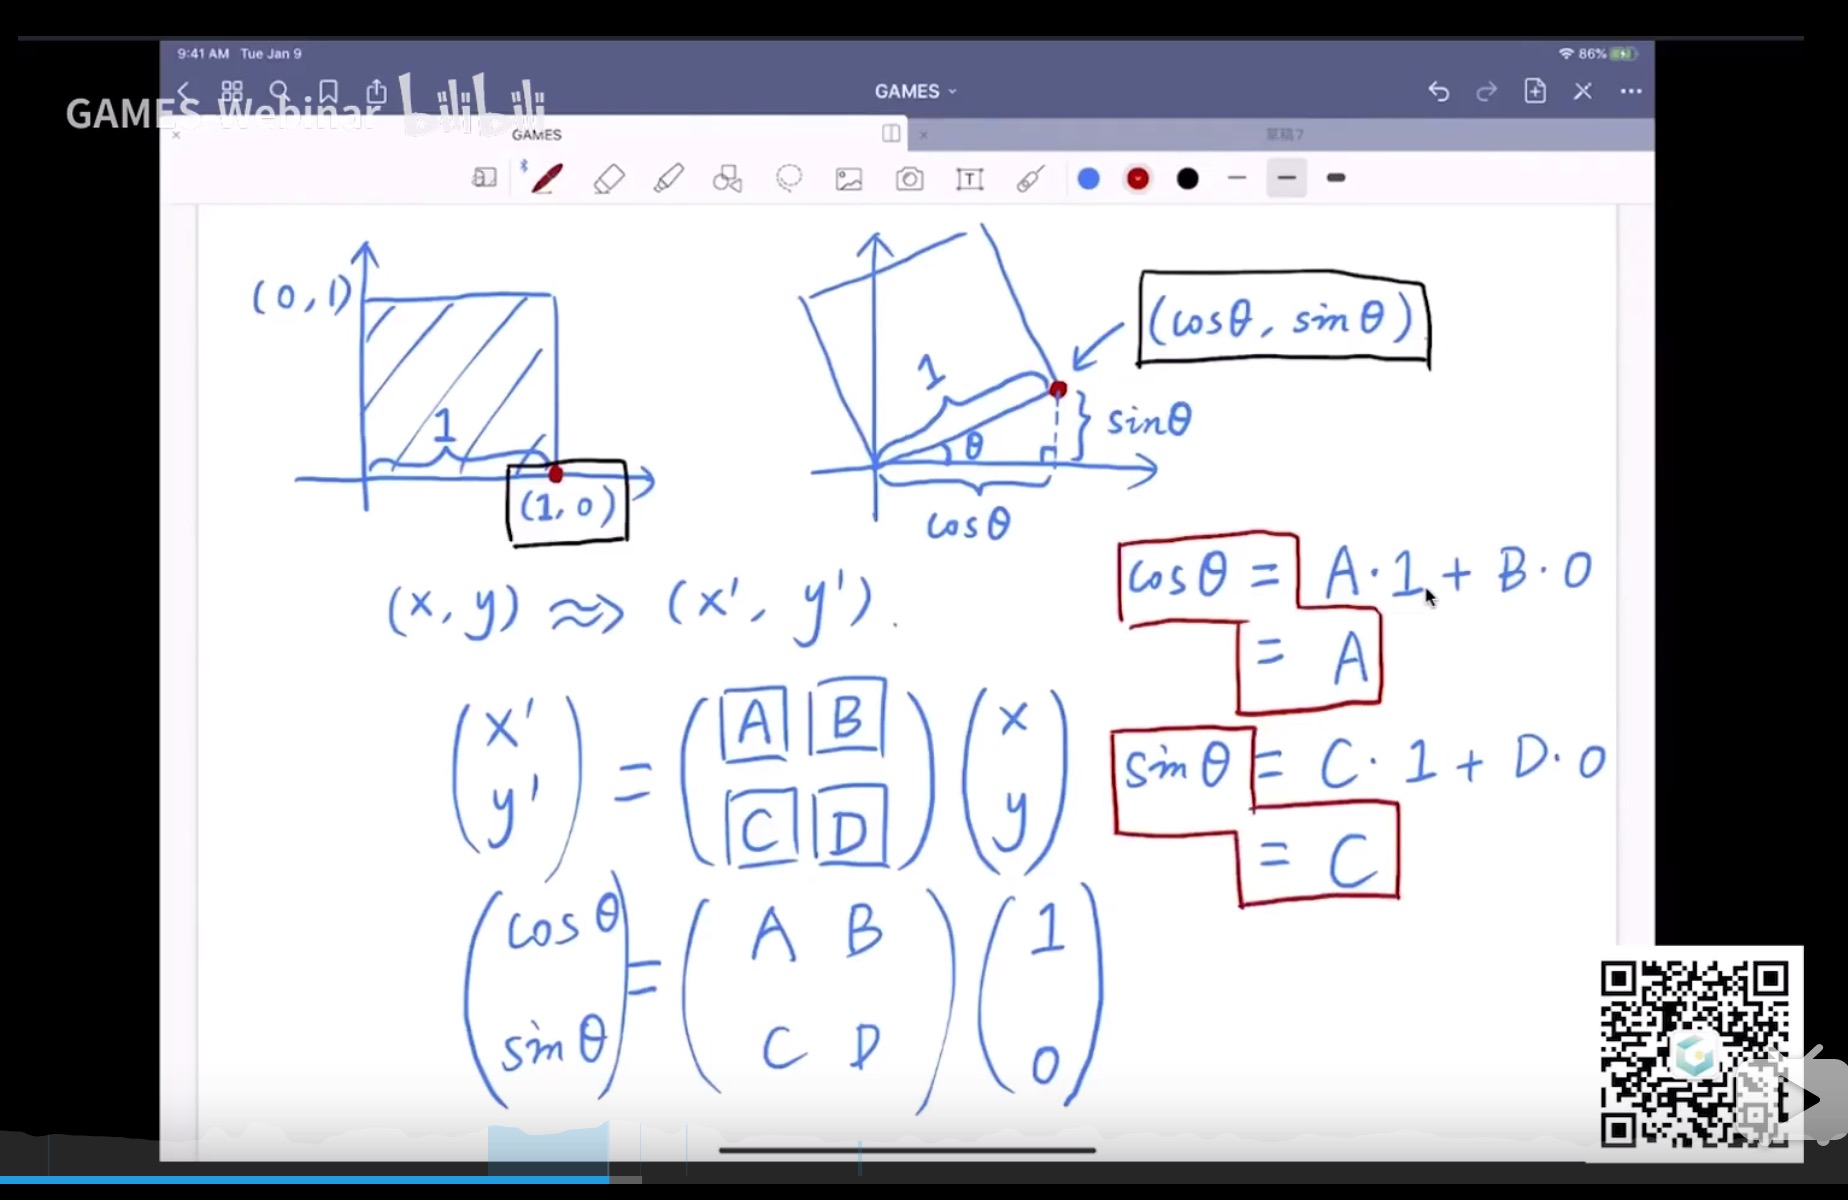 9:41 AM Tue Jan 9
86%
GAMES
GAMES Webinar bilibili
GAMES
草稿7
T
(0,1)
1
(1,0)
1
θ
(cosθ, sinθ)
sinθ
cosθ
(x,y) ≈> (x', y').
cosθ = A·1 + B·0
= A
(x' y') = (A B C D) (x y)
sinθ = C·1 + D·0
= C
(cosθ sinθ) = (A B C D) (1 0)